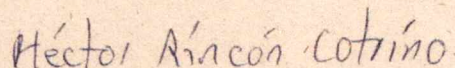 Héctor Rincón Cotrino